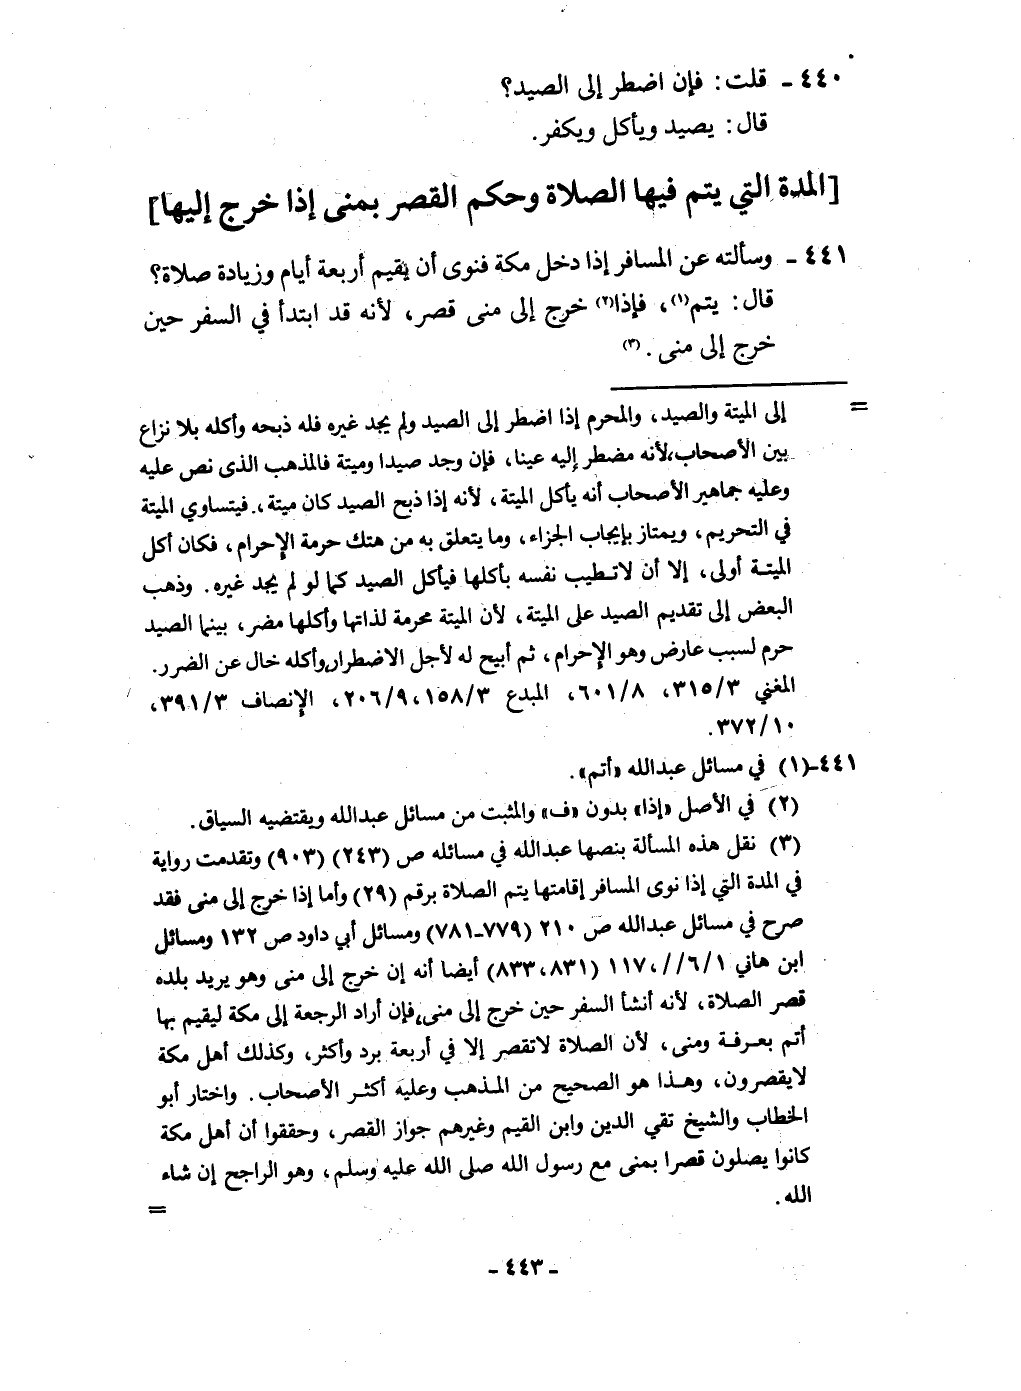 ٤٤٠ - قلت: فإن اضطر إلى الصيد؟
قال: يصيد ويأكل ويكفر.
[المدة التي يتم فيها الصلاة وحكم القصر بمنى إذا خرج إليها]
٤٤١ - وسألته عن المسافر إذا دخل مكة فنوى أن يقيم أربعة أيام وزيادة صلاة؟
قال: يتم(١)، فإذا(٢) خرج إلى منى قصر، لأنه قد ابتدأ في السفر حين
خرج إلى منى. (٣)
= إلى الميتة والصيد، والمحرم إذا اضطر إلى الصيد ولم يجد غيره فله ذبحه وأكله بلا نزاع
بين الأصحاب، لأنه مضطر إليه عينا، فإن وجد صيدا وميتة فالمذهب الذى نص عليه
وعليه جماهير الأصحاب أنه يأكل الميتة، لأنه إذا ذبح الصيد كان ميتة، فيتساوي الميتة
في التحريم، ويمتاز بإيجاب الجزاء، وما يتعلق به من هتك حرمة الإحرام، فكان أكل
الميتة أولى، إلا أن لاتطيب نفسه بأكلها فيأكل الصيد كما لو لم يجد غيره. وذهب
البعض إلى تقديم الصيد على الميتة، لأن الميتة محرمة لذاتها وأكلها مضر، بينما الصيد
حرم لسبب عارض وهو الإحرام، ثم أبيح له لأجل الاضطرار، وأكله خال عن الضرر.
المغني ٣١٥/٣، ٦٠١/٨، المبدع ١٥٨/٣، ٢٠٦/٩، الإنصاف ٣٩١/٣،
٣٧٢/١٠.
٤٤١-(١) في مسائل عبدالله «أتم».
(٢) في الأصل «إذا» بدون «ف» والمثبت من مسائل عبدالله ويقتضيه السياق.
(٣) نقل هذه المسألة بنصها عبدالله في مسائله ص (٢٤٣) (٩٠٣) وتقدمت رواية
في المدة التي إذا نوى المسافر إقامتها يتم الصلاة برقم (٢٩) وأما إذا خرج إلى منى فقد
صرح في مسائل عبدالله ص ٢١٠ (٧٧٩-٧٨١) ومسائل أبي داود ص ١٣٢ ومسائل
ابن هاني ٦/١//، ١١٧ (٨٣١، ٨٣٣) أيضا أنه إن خرج إلى منى وهو يريد بلده
قصر الصلاة، لأنه أنشأ السفر حين خرج إلى منى، فإن أراد الرجعة إلى مكة ليقيم بها
أتم بعرفة ومنى، لأن الصلاة لاتقصر إلا في أربعة برد وأكثر، وكذلك أهل مكة
لايقصرون، وهذا هو الصحيح من المذهب وعليه أكثر الأصحاب. واختار أبو
الخطاب والشيخ تقي الدين وابن القيم وغيرهم جواز القصر، وحققوا أن أهل مكة
كانوا يصلون قصرا بمنى مع رسول الله صلى الله عليه وسلم، وهو الراجح إن شاء
الله. =
- ٤٤٣ -